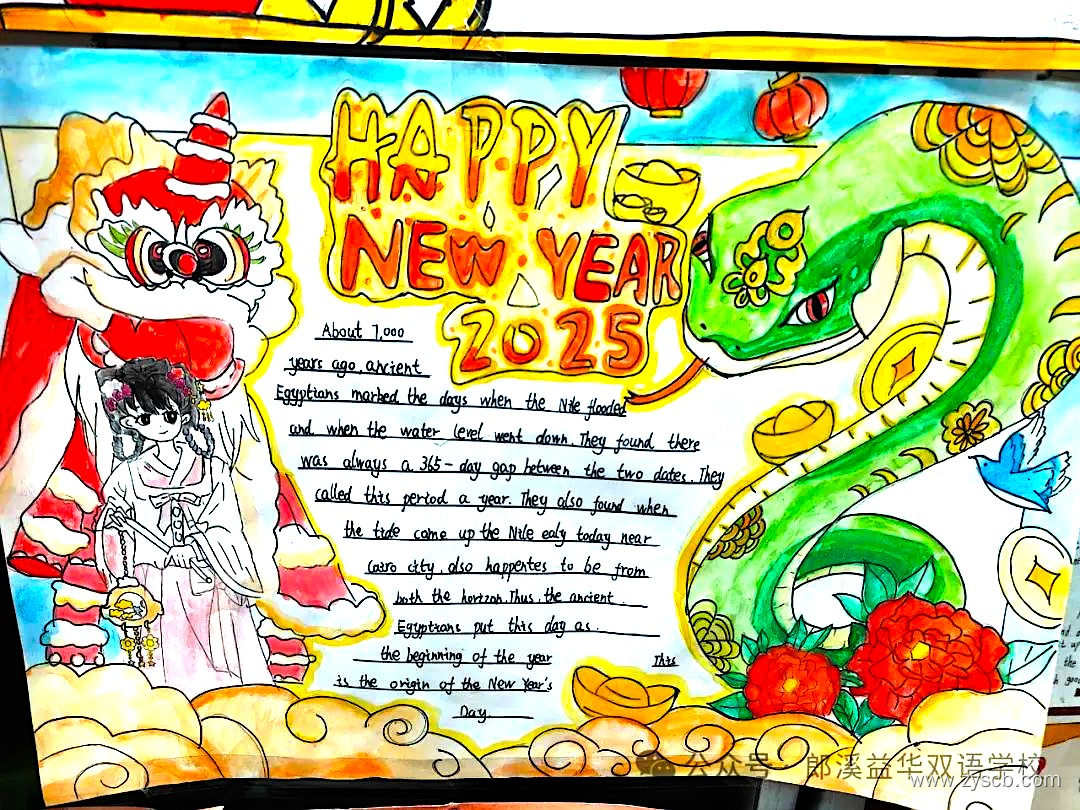 HAPPY
NEW YEAR
2025
About 7,000
years ago, ancient
Egyptians marked the days when the Nile flooded
and when the water level went down. They found there
was always a 365-day gap between the two dates. They
called this period a year. They also found when
the tide came up the Nile ealy today near
Cairo city, also happentes to be from
both the horizon. Thus, the ancient
Egyptians put this day as
the beginning of the year This
is the origin of the New Year's
Day.
公众号 · 郎溪益华双语学校
www.zyscb.com